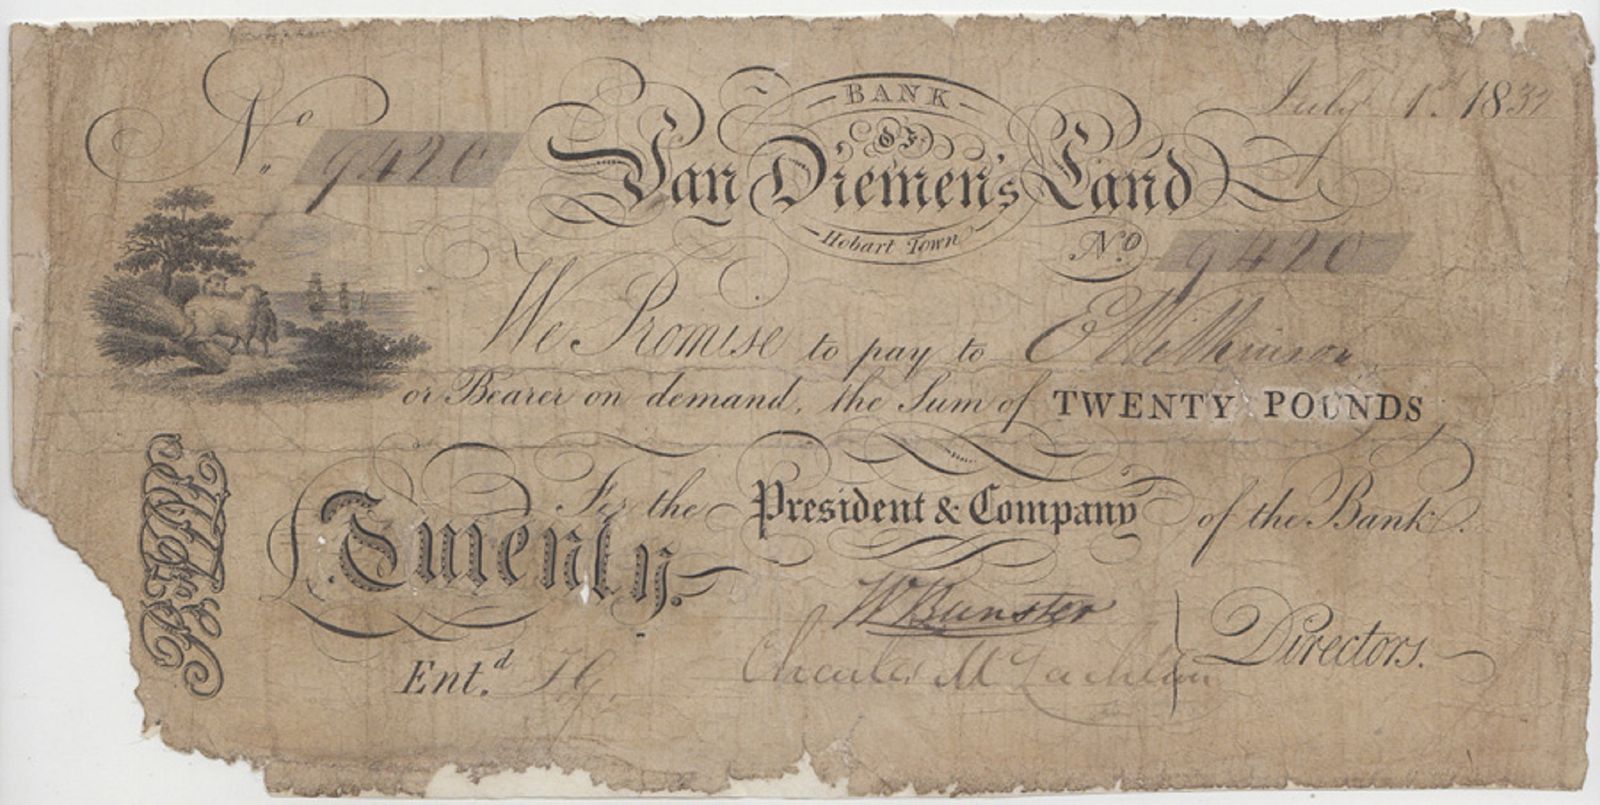 July 1st. 1837
No. 9420
BANK
OF
Van Diemen's Land
Hobart Town
No. 9420
We Promise to pay to E Wilkinson
or Bearer on demand, the Sum of TWENTY POUNDS
For the President & Company of the Bank.
Twenty.
W Bunster
Charles McLachlan
Directors.
Ent.d